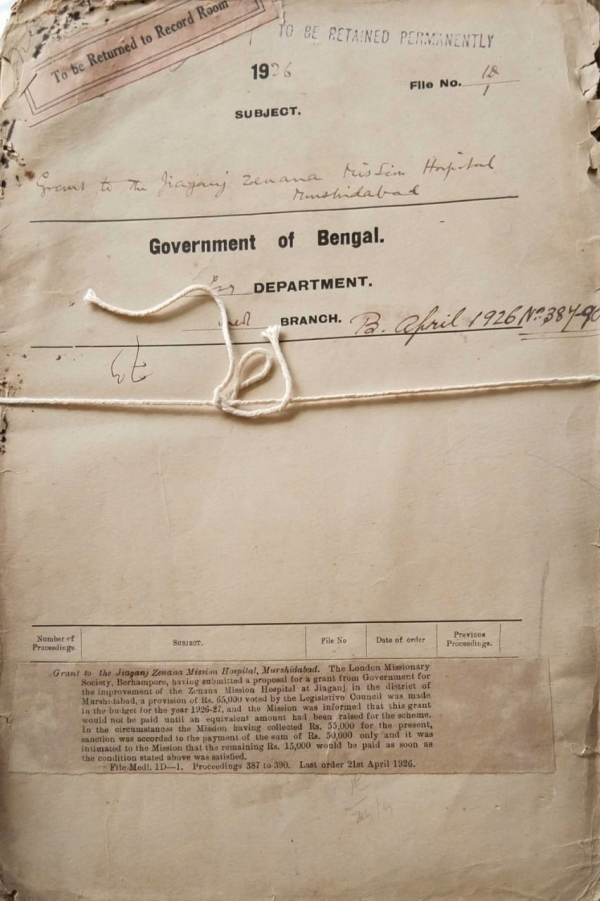 To be Returned to Record Room
TO BE RETAINED PERMANENTLY
1926
File No. 1D/1
SUBJECT.
Grant to the Jiaganj Zenana Mission Hospital
Murshidabad
Government of Bengal.
DEPARTMENT.
Med BRANCH. B. April 1926 No. 387-90
Number of Proceedings. SUBJECT. File No Date of order Previous Proceedings.
Grant to the Jiaganj Zenana Mission Hospital, Murshidabad. The London Missionary
Society, Berhampore, having submitted a proposal for a grant from Government for
the improvement of the Zenana Mission Hospital at Jiaganj, in the district of
Murshidabad, a provision of Rs. 65,000 voted by the Legislative Council was made
in the budget for the year 1926-27, and the Mission was informed that this grant
would not be paid until an equivalent amount had been raised for the scheme.
In the circumstances the Mission having collected Rs. 55,000 for the present,
sanction was accorded to the payment of the sum of Rs. 50,000 only and it was
intimated to the Mission that the remaining Rs. 15,000 would be paid as soon as
the condition stated above was satisfied.
File Medl. 1D—1. Proceedings 387 to 390. Last order 21st April 1926.